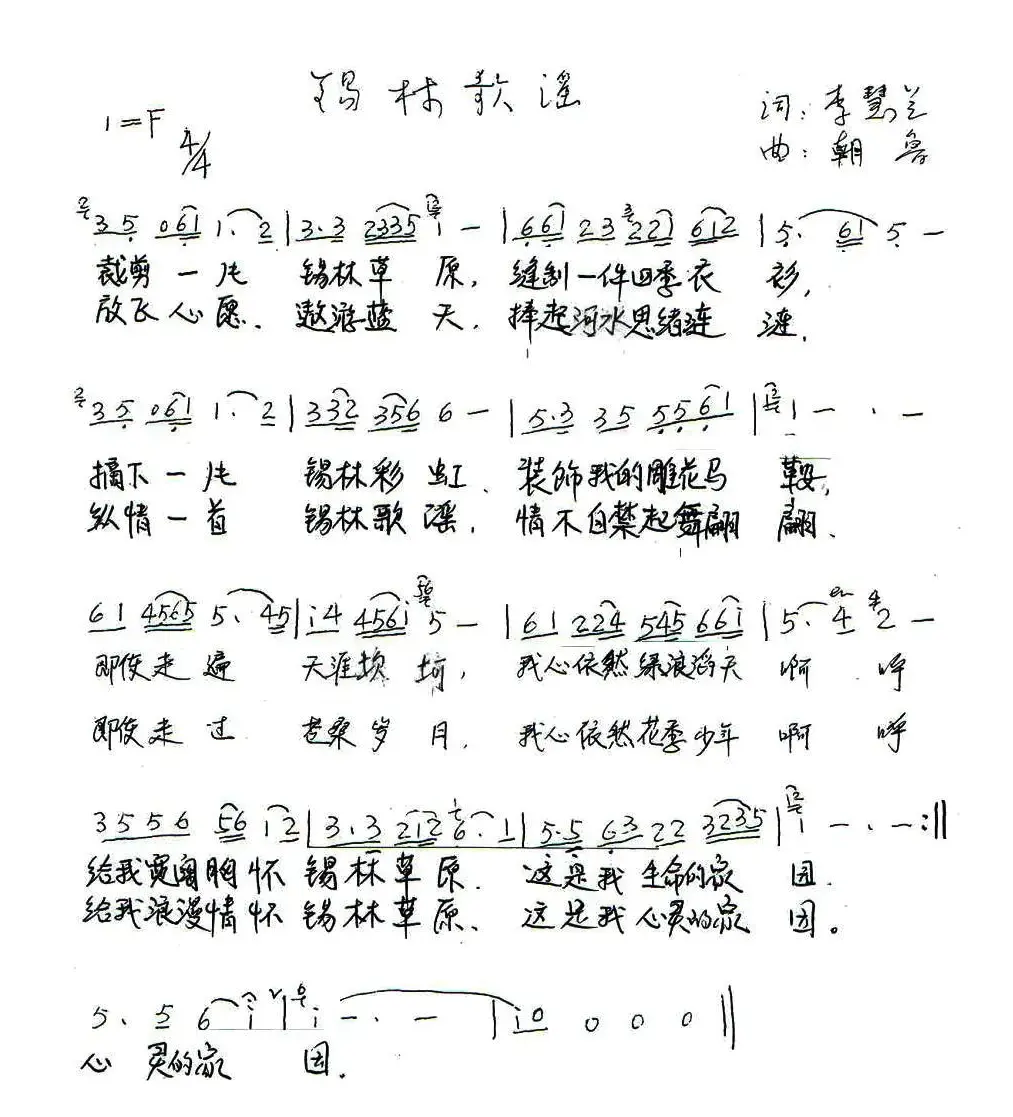 锡林歌谣
1=F 4/4
词：李慧兰
曲：朝鲁
3 5 061 1. 2 | 3.3 2335 1 - | 661 23 221 612 | 5. 61 5 -
裁剪一片 锡林草原，缝制一件四季衣衫，
放飞心愿、遨游蓝天，捧起河水思绪涟涟，
3 5 061 1. 2 | 332 356 6 - | 5.3 35 5561 | 1 - · -
摘下一片 锡林彩虹、装饰我的雕花马鞍，
纵情一首 锡林歌谣，情不自禁起舞翩翩、
61 4565 5. 45 | i4 456i 5 - | 61 224 545 66i | 5. 4 2 -
即使走遍 天涯坎坷，我心依然绿浪滔天 啊 呼
即使走过 苍桑岁月，我心依然花季少年 啊 呼
3556 56 i2 | 3.3 2i2 6. 1 | 5.5 63 22 3235 | 1 - . - :||
给我宽阔胸怀 锡林草原、这是我 生命的家园.
给我浪漫情怀 锡林草原、这是我 心灵的家园。
5. 5 6 i | i - . - | i0 0 0 0 ||
心 灵的家 园.